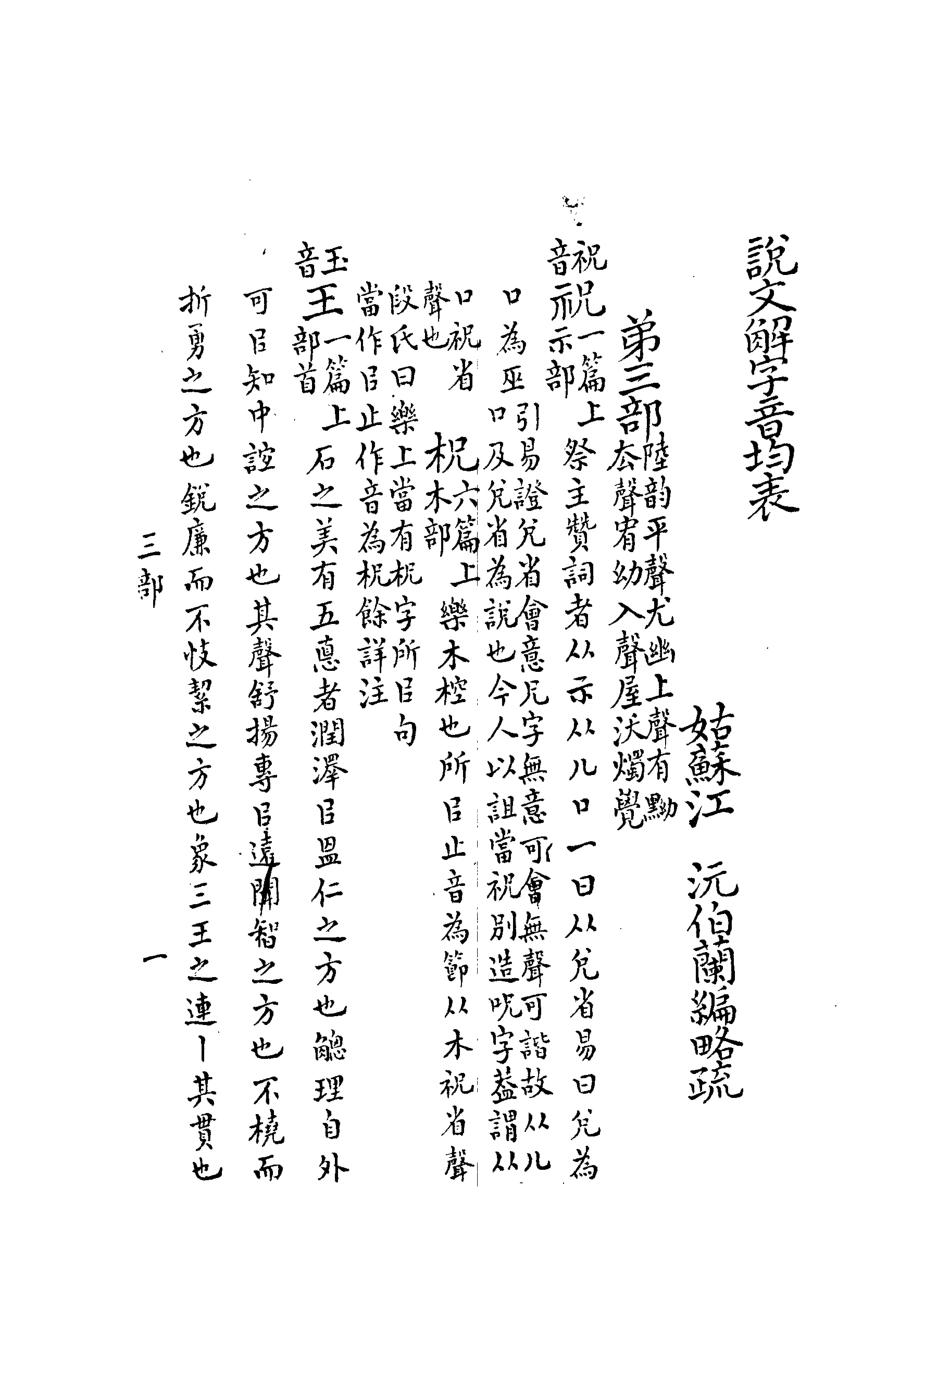 說文解字音均表
姑蘇江　沅伯蘭編略疏
弟三部
陸韵平聲尤幽上聲有黝
厺聲宥幼入聲屋沃燭覺
祝音
祝一篇上示部
祭主贊詞者从示从儿口一曰从兌省易曰兌為
口為巫
引易證兌省會意兄字無意可會無聲可諧故从儿
口及兌省為說也今人以詛當祝別造呪字葢謂从
口祝省聲也
柷六篇上木部
樂木椌也所㠯止音為節从木祝省聲
段氏曰樂上當有柷字所㠯句
當作㠯止作音為柷餘詳注
玉音
王一篇上部首
石之美有五悳者潤澤㠯昷仁之方也䚡理自外
可㠯知中誼之方也其聲舒揚專㠯遠聞智之方也不橈而
折勇之方也銳廉而不忮絜之方也象三王之連丨其貫也
三部
一